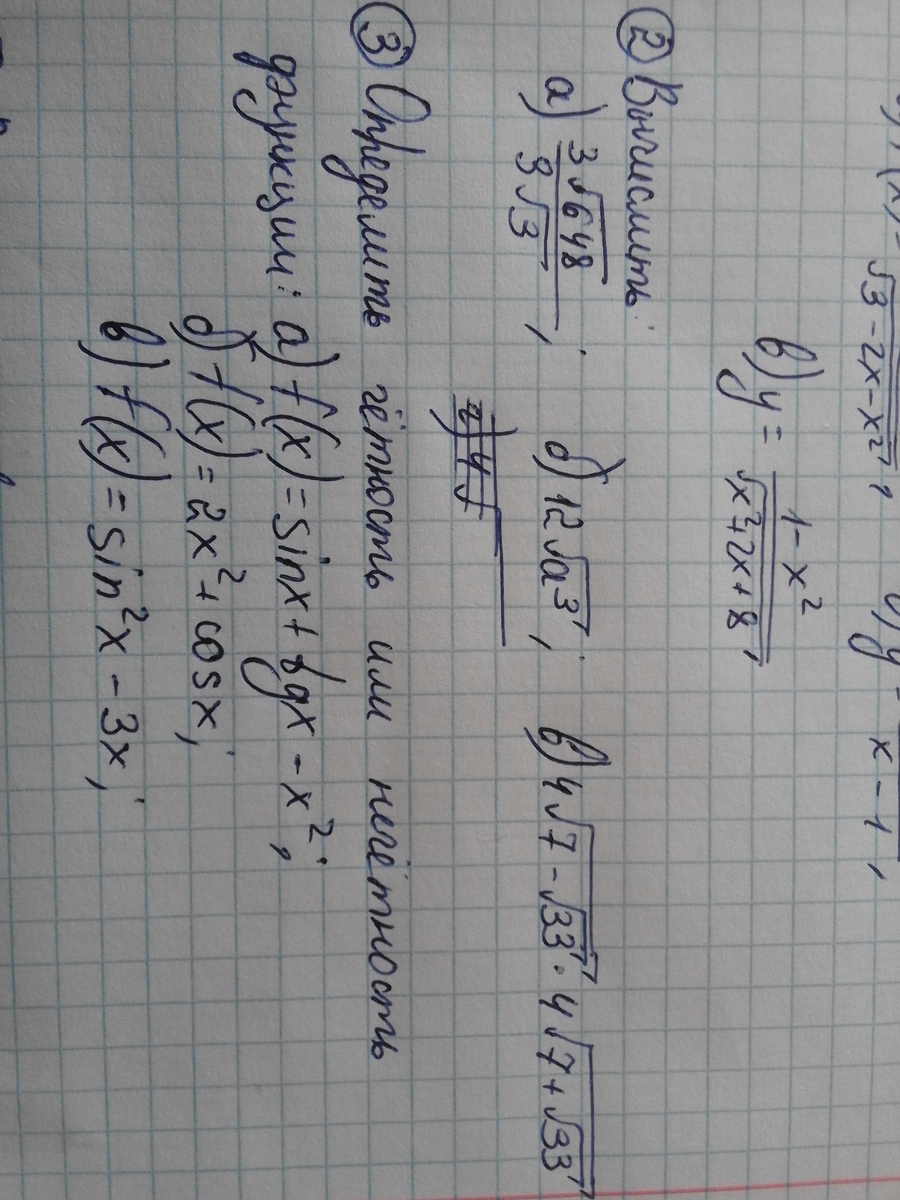 √3-2x-x²,
x-1,
в) y = 1-x² / √x²+2x+8,
② Вычислить:
а) 3√648 / 3√3; б) 12√a³; в) 4√7-√33 · 4√7+√33
③ Определить чётность или нечётность
функции: а) f(x) = sinx + tgx - x²;
б) f(x) = 2x² + cosx;
в) f(x) = sin²x - 3x;